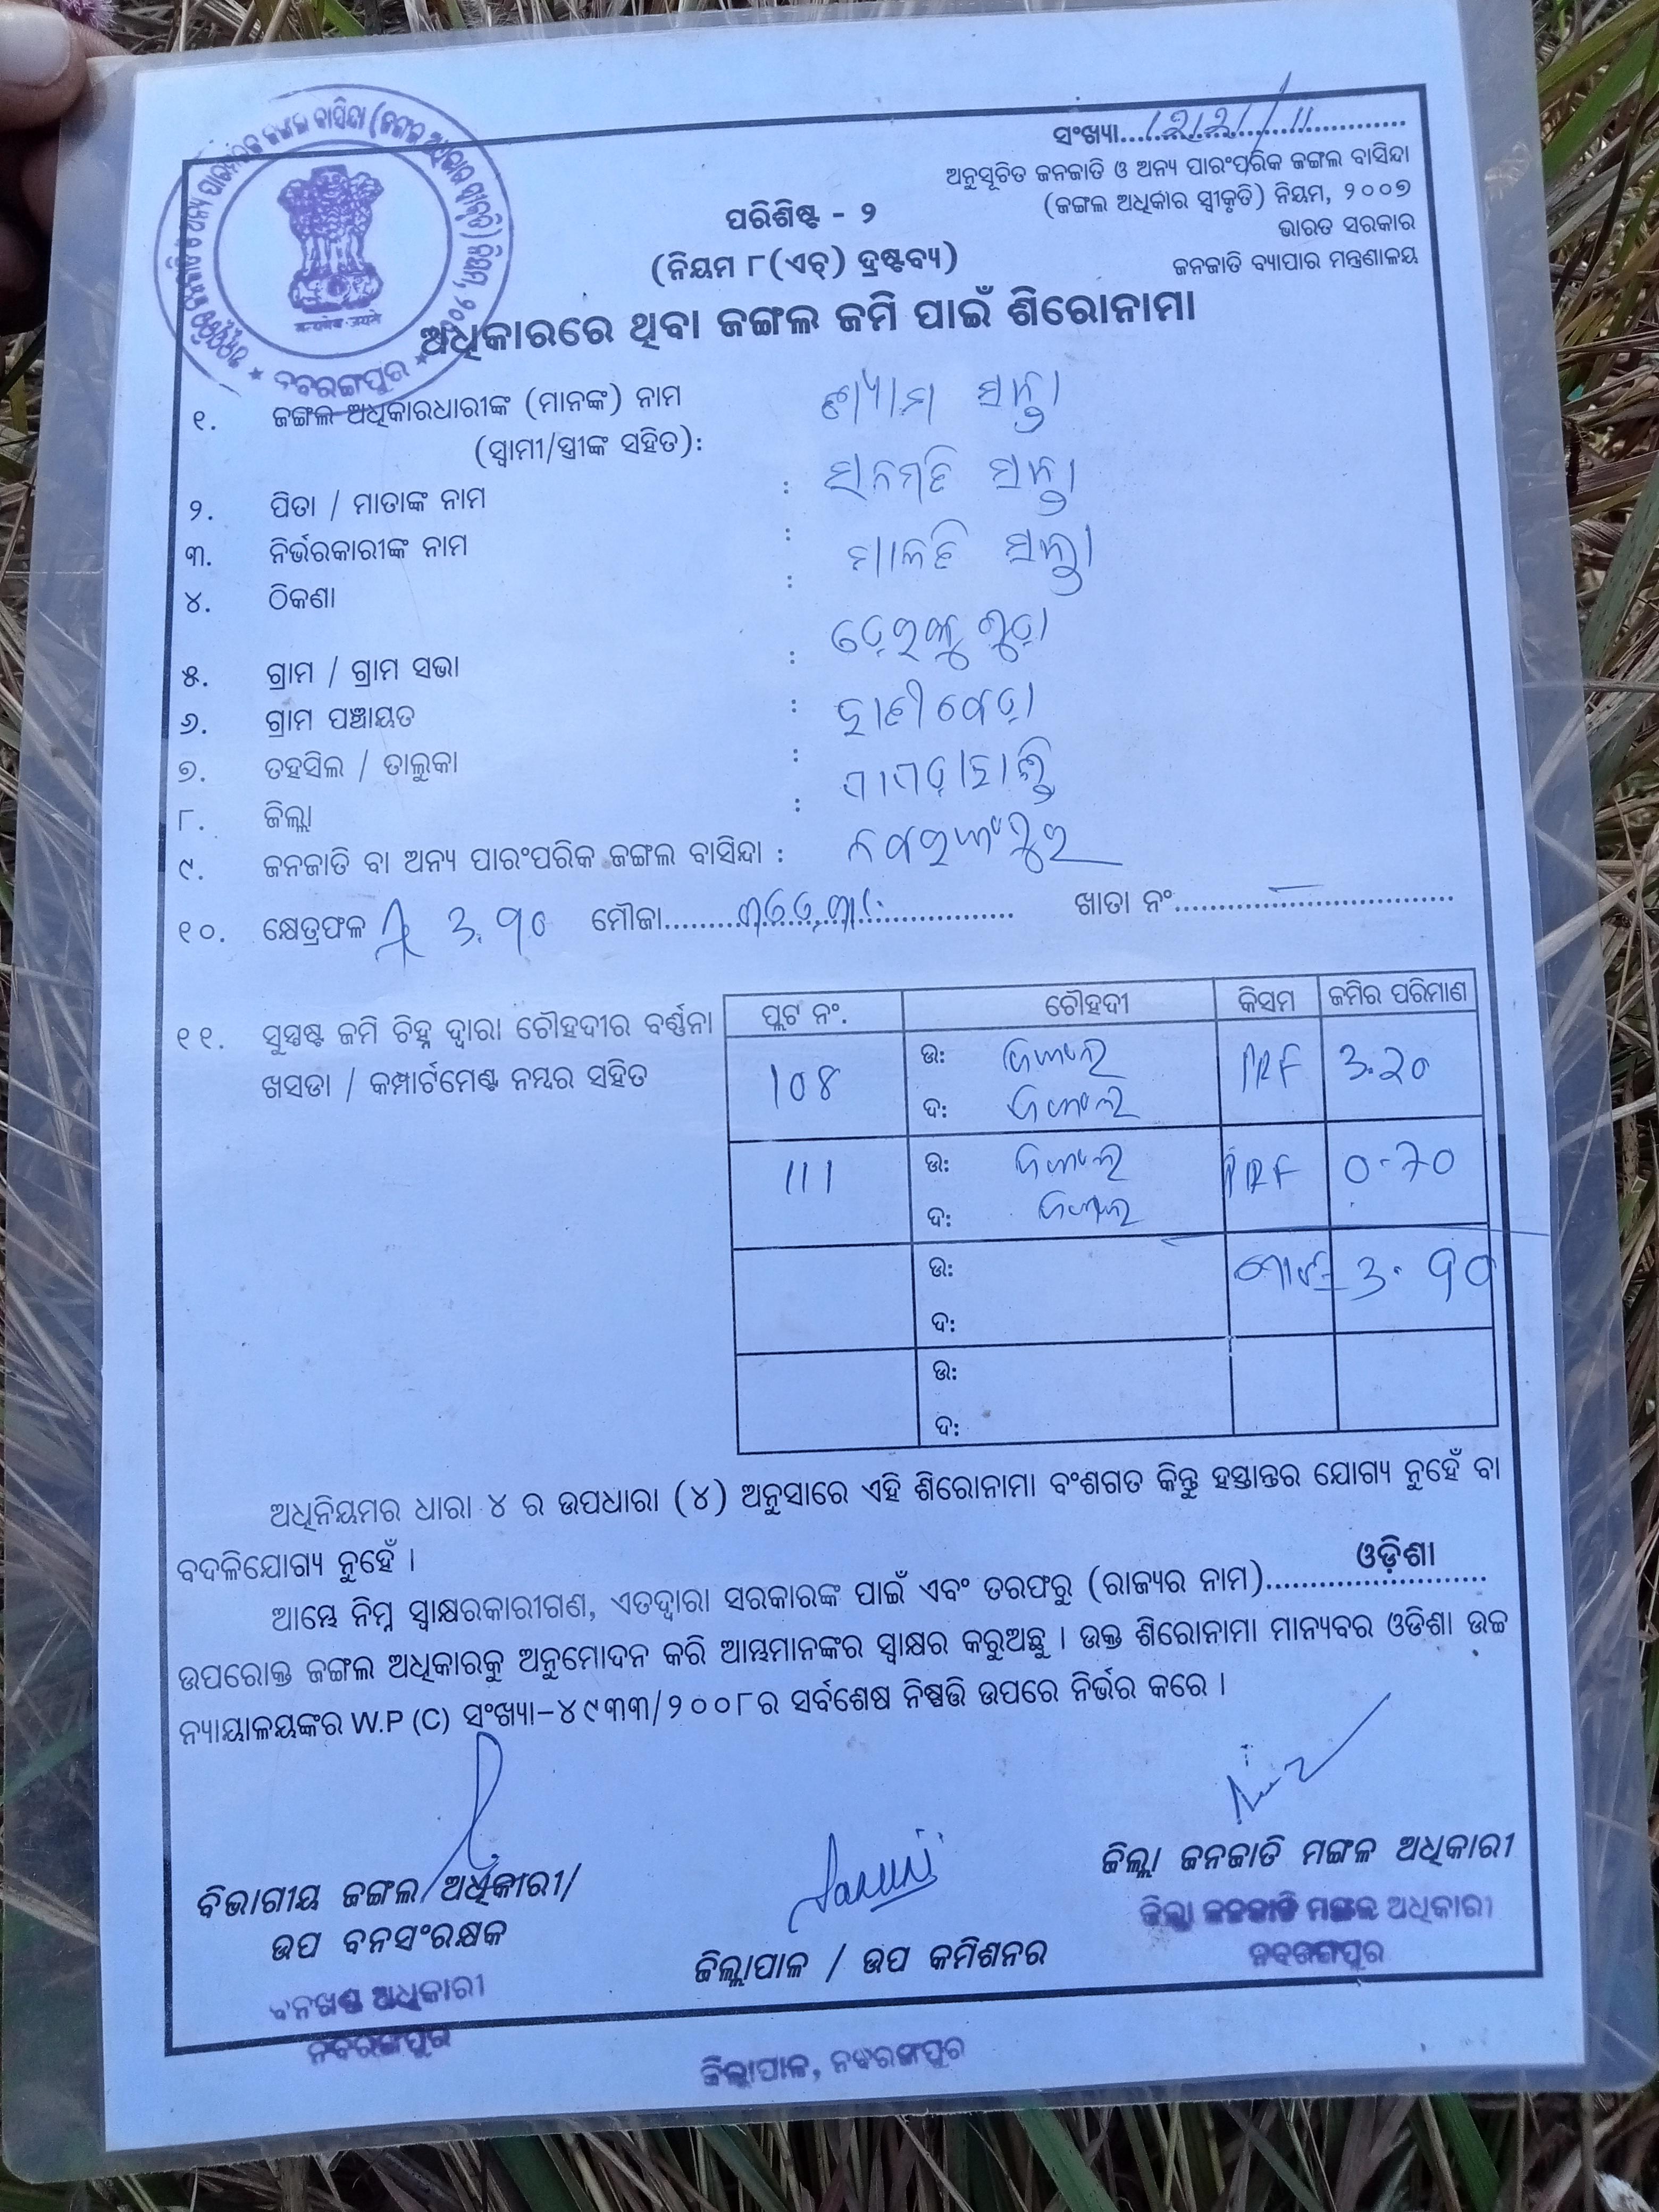 ସଂଖ୍ୟା....1221/11
ଅନୁସୂଚିତ ଜନଜାତି ଓ ଅନ୍ୟ ପାରଂପରିକ ଜଙ୍ଗଲ ବାସିନ୍ଦା
(ଜଙ୍ଗଲ ଅଧିକାର ସ୍ୱୀକୃତି) ନିୟମ, ୨୦୦୭
ଭାରତ ସରକାର
ଜନଜାତି ବ୍ୟାପାର ମନ୍ତ୍ରଣାଳୟ
ପରିଶିଷ୍ଟ - ୨
(ନିୟମ ୮(ଏଚ୍) ଦ୍ରଷ୍ଟବ୍ୟ)
ଅଧିକାରରେ ଥିବା ଜଙ୍ଗଲ ଜମି ପାଇଁ ଶିରୋନାମା
ନବରଙ୍ଗପୁର
୧. ଜଙ୍ଗଲ ଅଧିକାରଧାରୀଙ୍କ (ମାନଙ୍କ) ନାମ ଶ୍ୟାମ
(ସ୍ୱାମୀ/ସ୍ତ୍ରୀଙ୍କ ସହିତ):
୨. ପିତା / ମାତାଙ୍କ ନାମ :
୩. ନିର୍ଭରକାରୀଙ୍କ ନାମ : ମାଳତି
୪. ଠିକଣା :
୫. ଗ୍ରାମ / ଗ୍ରାମ ସଭା :
୬. ଗ୍ରାମ ପଞ୍ଚାୟତ :
୭. ତହସିଲ / ତାଲୁକା :
୮. ଜିଲ୍ଲା : ନବରଙ୍ଗପୁର
୯. ଜନଜାତି ବା ଅନ୍ୟ ପାରଂପରିକ ଜଙ୍ଗଲ ବାସିନ୍ଦା :
୧୦. କ୍ଷେତ୍ରଫଳ ୩.୯୦ ମୌଜା.... ଖାତା ନଂ....
୧୧. ସୁସ୍ପଷ୍ଟ ଜମି ଚିହ୍ନ ଦ୍ୱାରା ଚୌହଦୀର ବର୍ଣ୍ଣନା
ଖସଡା / କମ୍ପାର୍ଟମେଣ୍ଟ ନମ୍ବର ସହିତ
ପ୍ଲଟ ନଂ. ଚୌହଦୀ କିସମ ଜମିର ପରିମାଣ
108 ଉ: ଜଙ୍ଗଲ PRF 3.20
ଦ: ଜଙ୍ଗଲ
111 ଉ: ଜଙ୍ଗଲ PRF 0-70
ଦ: ଜଙ୍ଗଲ
ଉ: ମୋଟ- ୩.୯୦
ଦ:
ଉ:
ଦ:
ଅଧିନିୟମର ଧାରା ୪ ର ଉପଧାରା (୪) ଅନୁସାରେ ଏହି ଶିରୋନାମା ବଂଶଗତ କିନ୍ତୁ ହସ୍ତାନ୍ତର ଯୋଗ୍ୟ ନୁହେଁ ବା
ବଦଳିଯୋଗ୍ୟ ନୁହେଁ ।
ଆମ୍ଭେ ନିମ୍ନ ସ୍ୱାକ୍ଷରକାରୀଗଣ, ଏତଦ୍ୱାରା ସରକାରଙ୍କ ପାଇଁ ଏବଂ ତରଫରୁ (ରାଜ୍ୟର ନାମ)....ଓଡ଼ିଶା....
ଉପରୋକ୍ତ ଜଙ୍ଗଲ ଅଧିକାରକୁ ଅନୁମୋଦନ କରି ଆମ୍ଭମାନଙ୍କର ସ୍ୱାକ୍ଷର କରୁଅଛୁ । ଉକ୍ତ ଶିରୋନାମା ମାନ୍ୟବର ଓଡିଶା ଉଚ୍ଚ
ନ୍ୟାୟାଳୟଙ୍କର W.P (C) ସଂଖ୍ୟା-୪୯୩୩/୨୦୦୮ର ସର୍ବଶେଷ ନିଷ୍ପତ୍ତି ଉପରେ ନିର୍ଭର କରେ ।
ବିଭାଗୀୟ ଜଙ୍ଗଲ ଅଧିକାରୀ/
ଉପ ବନସଂରକ୍ଷକ
ବନଖଣ୍ଡ ଅଧିକାରୀ
ନବରଙ୍ଗପୁର
ଜିଲ୍ଲାପାଳ / ଉପ କମିଶନର
ଜିଲ୍ଲାପାଳ, ନବରଙ୍ଗପୁର
ଜିଲ୍ଲା ଜନଜାତି ମଙ୍ଗଳ ଅଧିକାରୀ
ଜିଲ୍ଲା ଜନଜାତି ମଙ୍ଗଳ ଅଧିକାରୀ
ନବରଙ୍ଗପୁର